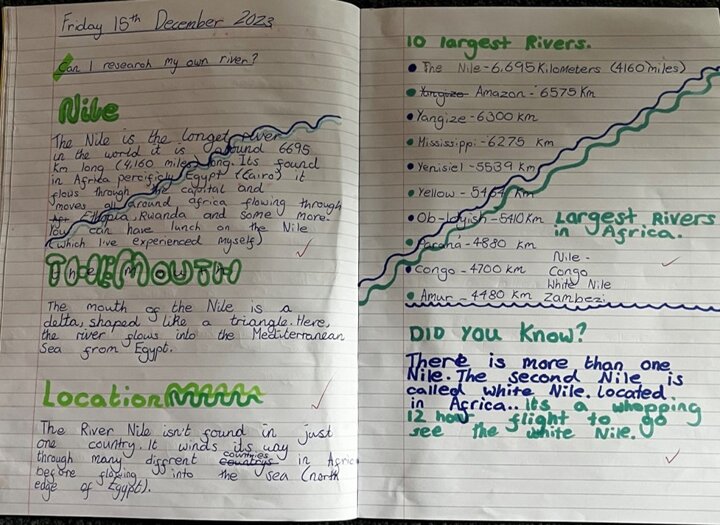 Friday 15th December 2023
Can I research my own river?
Nile
The Nile is the longet river
in the world it is around 6695
km long (4,160 miles) long. Its found
in Africa percificly Egypt (Cairo) it
flows through the capital and
moves all around africa flowing through
Ethiopia, Rwanda and some more.
You can have lunch on the Nile
(which I've experienced myself)
THE MOUTH
The mouth of the Nile is a
delta, shaped like a triangle. Here,
the river flows into the Mediterranean
Sea from Egypt.
Location
The River Nile isn't found in just
one country. It winds its way
through many different countries in Africa
before flowing into the sea (north
edge of Egypt).
10 largest Rivers.
• The Nile - 6,695 Kilometers (4160 miles)
• Yangize Amazon - 6575 Km
• Yangize - 6300 Km
• Mississippi - 6275 Km
• Yenisiel - 5539 Km
• Yellow - 5464 Km
• Ob - Ioyish - 5410 Km
• Paraná - 4880 Km
• Congo - 4700 Km
• Amur - 4480 Km
Largest Rivers
in Africa.
Nile -
Congo
White Nile
Zambezi
DID You Know?
There is more than one
Nile. The second Nile is
called white Nile. located
in Africa.. its a whopping
12 hour flight to go
see the white Nile.